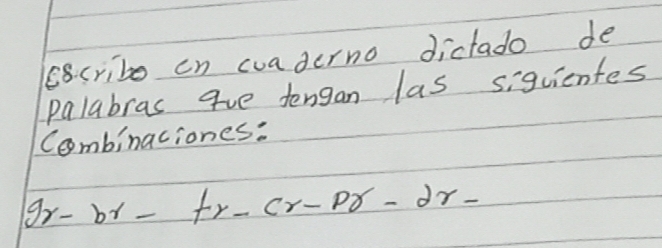 Escribo en cuaderno dictado de
palabras que tengan las siguientes
Combinaciones:
gr- br - tr- cr- pr - dr -